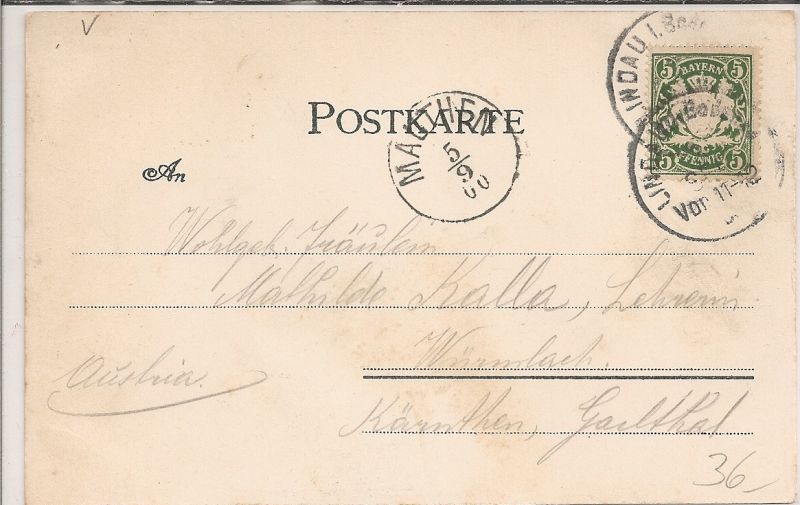 V
LINDAU i. Bod
BAYERN
5 5
5 5
PFENNIG
LINDAU i. Bod
Vor. 11-12
POSTKARTE
MAUTHEN
5/9
00
An
Wohlgeb. Fräulein
Mathilde Kalla, Lehrerin
Würmlach.
Austria.
Kärnthen, Gailthal
36